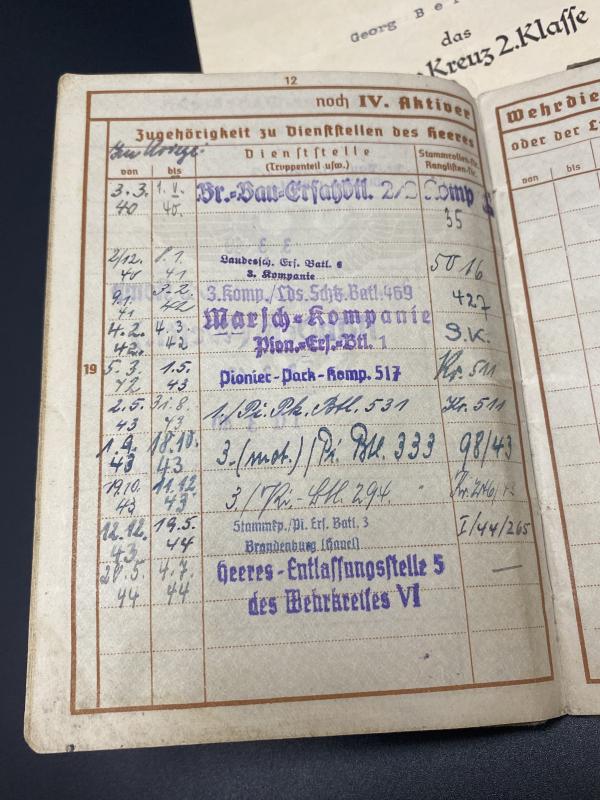 Georg Be
das
Kreuz 2. Klasse
12
noch IV. Aktiver
Zugehörigkeit zu Dienststellen des Heeres
Im Kriege:
von bis
Dienststelle
(Truppenteil usw.)
Stammrollen-Nr.
Ranglisten-Nr.
3.3. 40 1.V. 40. Br.-Bau-Ersabtl. 2/3 Komp
35
2/12. 40 41 Landessch. Ers. Batl. 6
3. Kompanie
5016
9.1. 41 42 3. Komp./Lds. Schtz. Batl. 469 427
4.2. 42 4.3. 42 Marsch-Kompanie
Pion.-Ers.-Btl. 1
S.K.
19
5.3. 42 1.5. 43 Pionier-Park-Komp. 517 Kr. 511
2.5. 43 31.8. 43 1./Pi. Pk. Btl. 531 Kr. 511
1.9. 43 18.10. 43 3.(mot.)/Pi. Btl. 333 98/43
19.10. 43 11.12. 43 3./Pi.-Btl. 294
12.12. 43 19.5. 44 Stammkp./Pi. Ers. Batl. 3
Brandenburg (Havel)
I/44/265
20.5. 44 4.7. 44 Heeres-Entlassungsstelle 5
des Wehrkreises VI
—
Wehrdie
oder der L
von bis